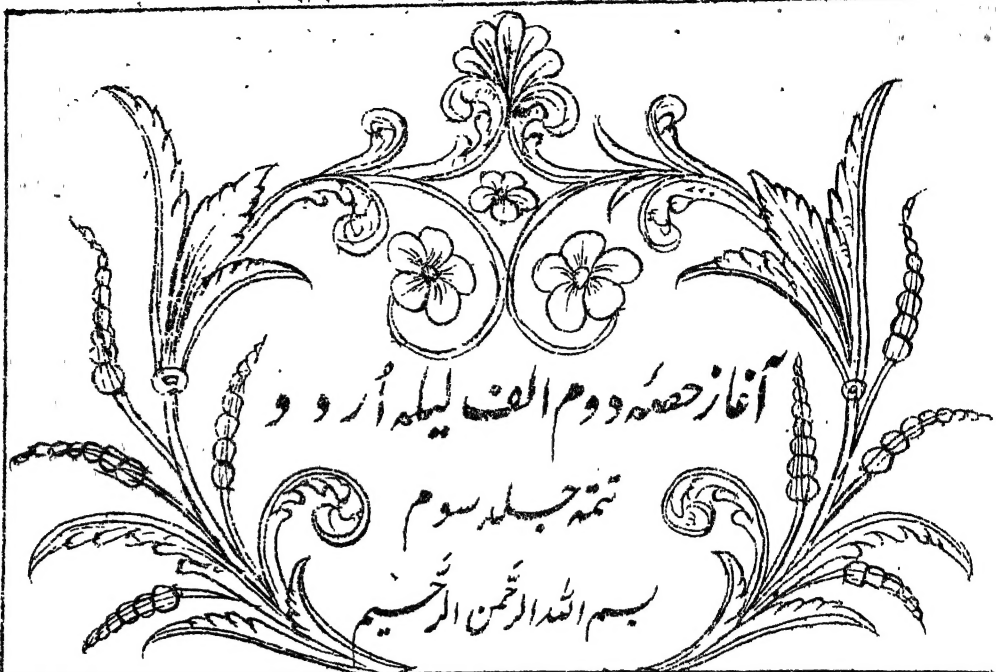 آغاز حصۂ دوم الف لیلہ اُردو
تتمہ جلد سوم
بسم اللہ الرَّحمن الرَّحیم